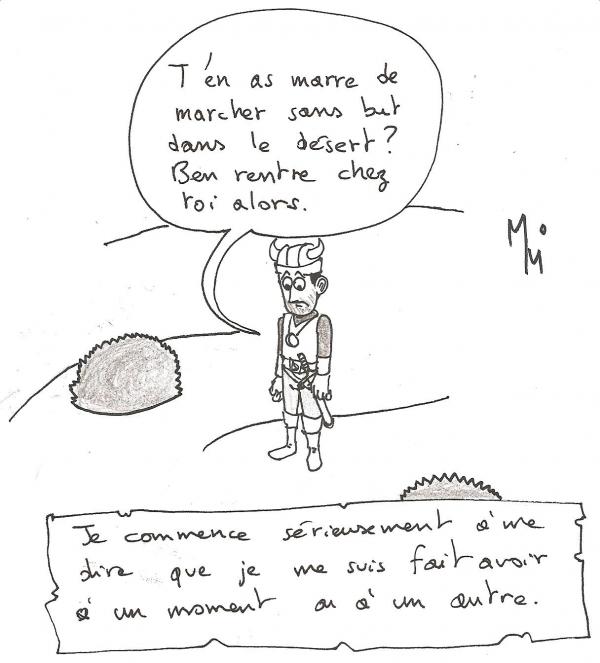 T'en as marre de
marcher sans but
dans le désert?
Ben rentre chez
toi alors.
Je commence sérieusement à me
dire que je me suis fait avoir
à un moment ou à un autre.